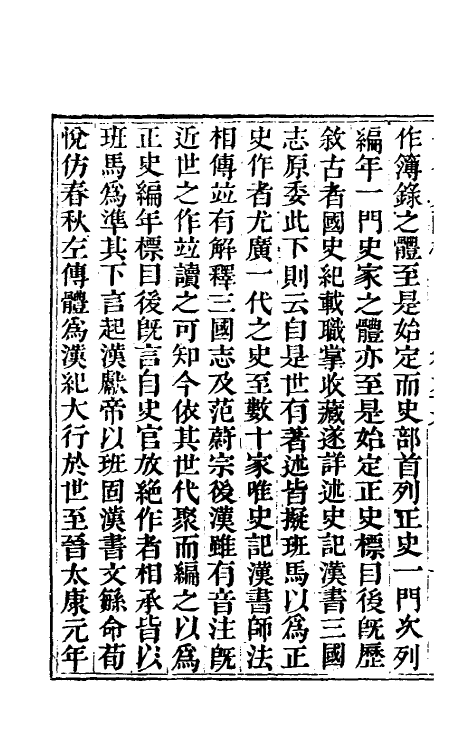 作簿錄之體至是始定而史部首列正史一門次列
編年一門史家之體亦至是始定正史標目後旣歷
敘古者國史紀載職掌收藏遂詳述史記漢書三國
志原委此下則云自是世有著述皆擬班馬以爲正
史作者尤廣一代之史至數十家唯史記漢書師法
相傳竝有解釋三國志及范蔚宗後漢雖有音注旣
近世之作竝讀之可知今依其世代聚而編之以爲
正史編年標目後旣言自史官放絶作者相承皆以
班馬爲準其下言起漢獻帝以班固漢書文繇命荀
悅仿春秋左傳體爲漢紀大行於世至晉太康元年